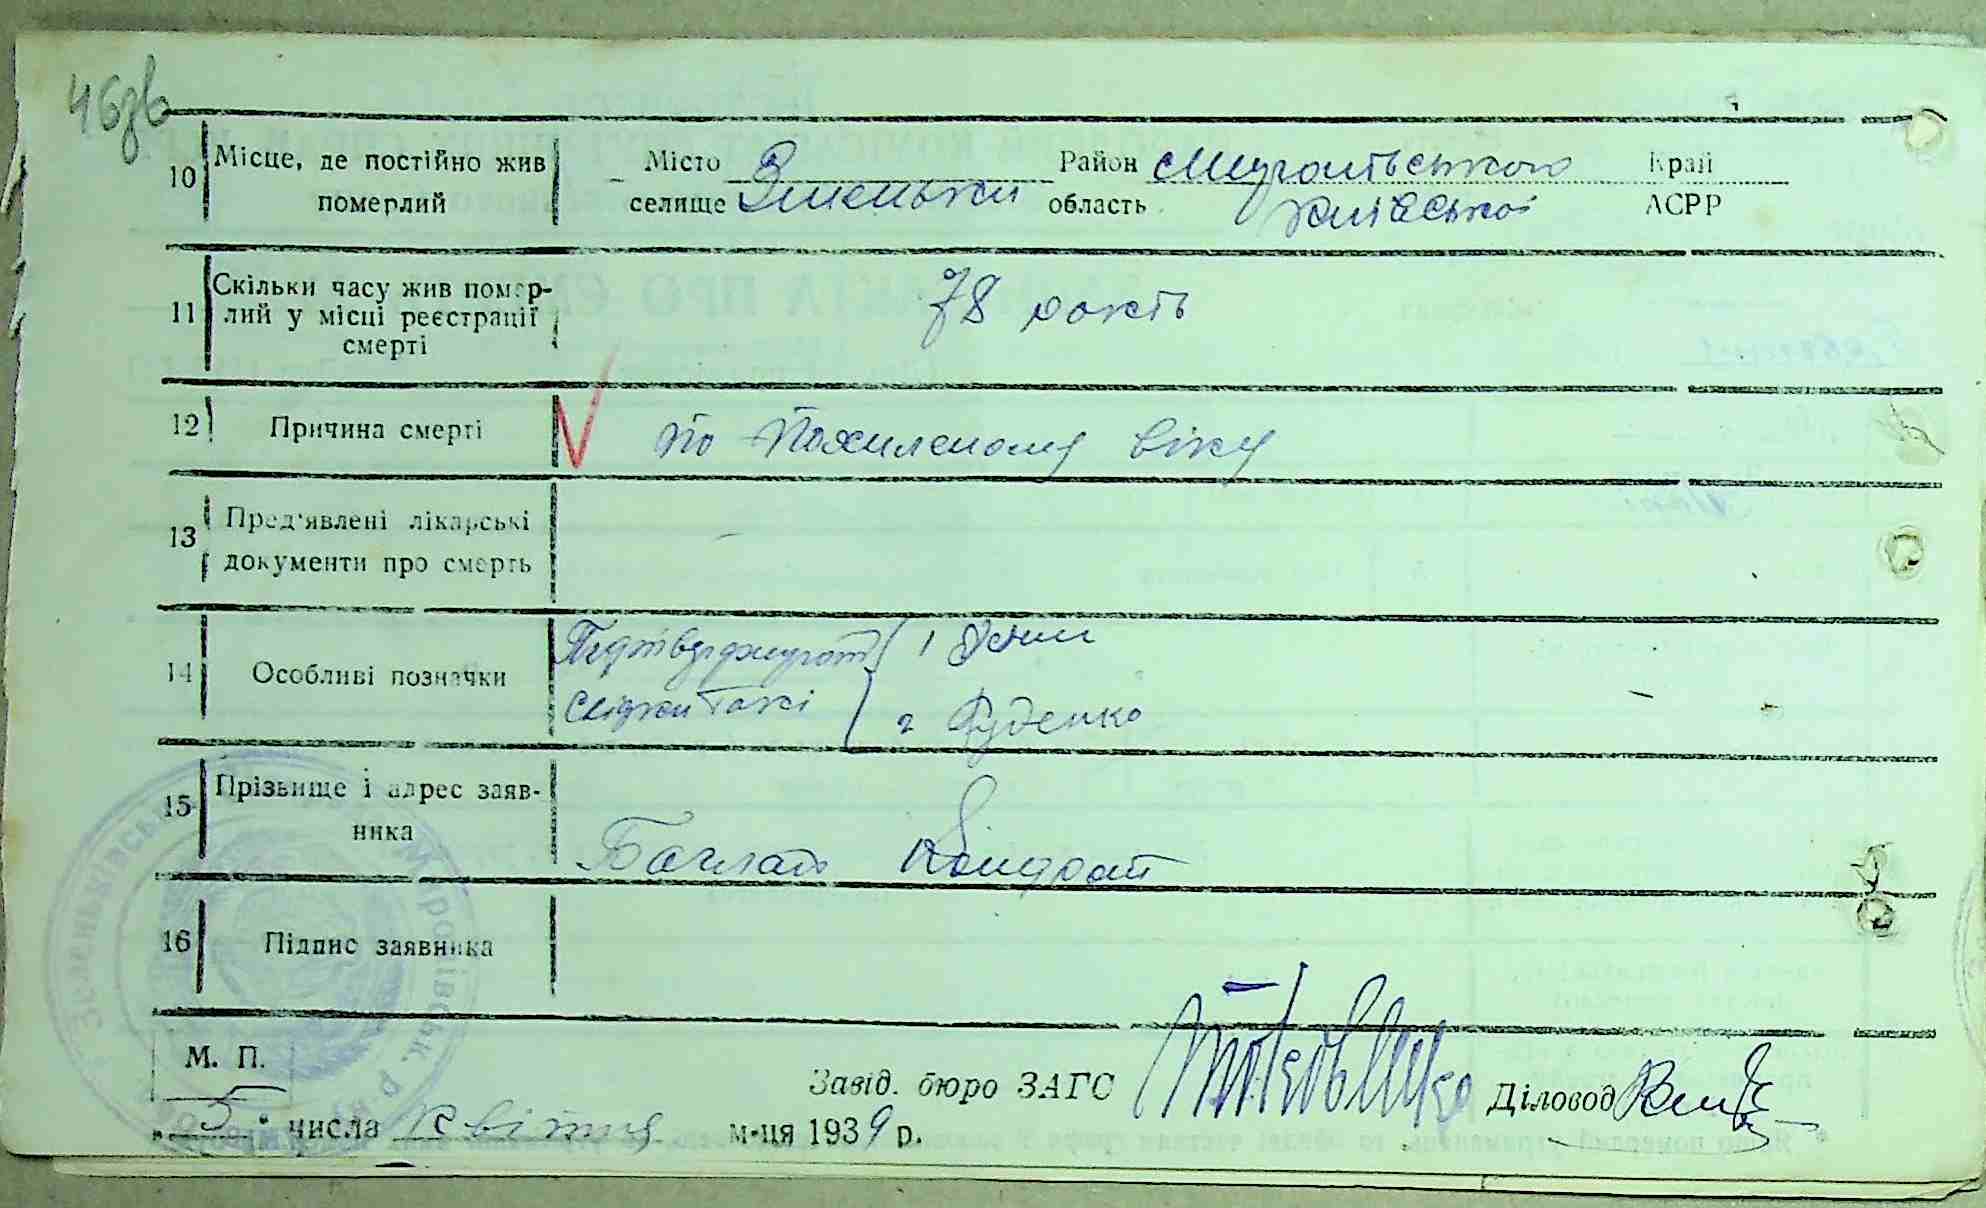 46зв
10 Місце, де постійно жив померлий
Місто
селище Зиленьки
Район Миронівського
область Київської
Край
АСРР
11 Скільки часу жив померлий у місці реєстрації смерті
78 років
12 Причина смерті
по Похиленому віку
13 Пред'явлені лікарські документи про смерть
14 Особливі позначки
свідки такі
1
2 Руденко
15 Прізвище і адрес заявника
Баглай Кондрат
16 Підпис заявника
М. П.
Завід. бюро ЗАГС
Діловод
„5" числа квітня м-ця 1939 р.